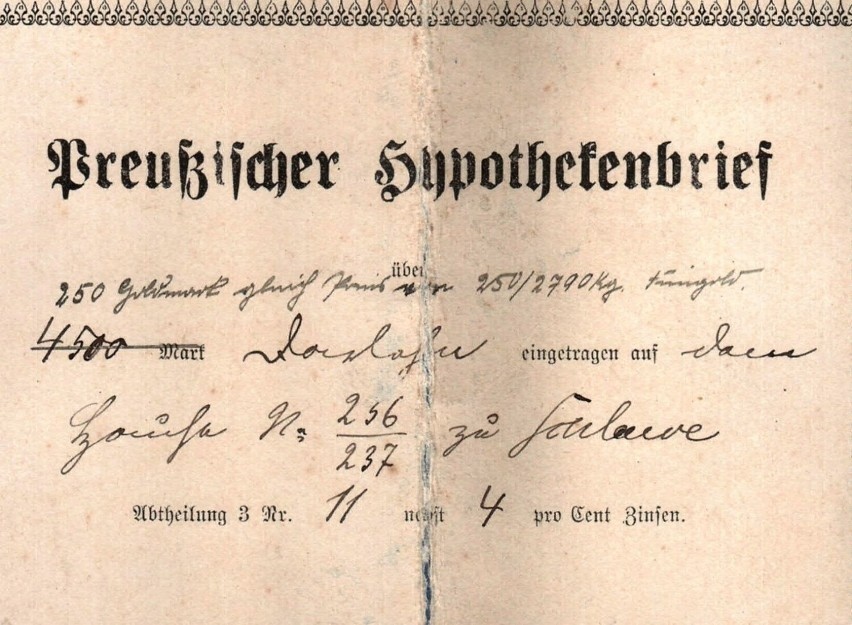 Preußischer Hypothekenbrief
über
250 Goldmark gleich Preis von 250/2790 Kg. Feingold.
4500 Mark Darlehn eingetragen auf dem
Hause No. 256/237 zu Schlawe
Abtheilung 3 Nr. 11 nebst 4 pro Cent Zinsen.